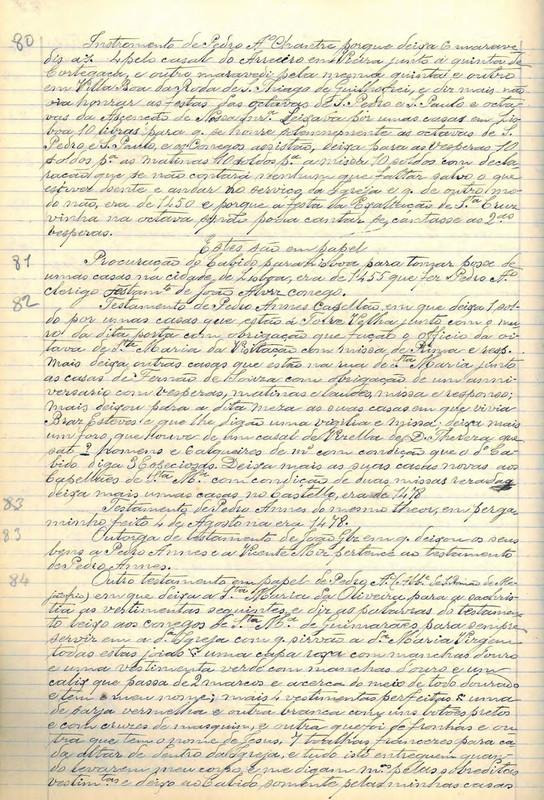 80 Instromento de Pedro Aº Chantre porque deixa 6 marave
dis a 4 pelo casal do Arneiro em Vieira junto á quinta de
Cortegaça, e outro maravedi pela mesma quinta e outro
em Villa Boa da Roda de S. Thiago de Guilhofrei, e diz mais
honrar as festas das octavas de S. Pedro e S. Paulo e octa
vas da Ascenção de Nossa Snrª. Deixava por umas casas em Lis
boa 10 libras para q. se honre as octavas de S.
Pedro e S. Paulo, e q. Conegos assistão, deixa para as vesperas 10
soldos pª as matinas 10 soldos pª a missa 10 soldos com decla
ração que se não contará nenhum que faltar salvo o que
estiver doente e andar no serviço da Igreja e q. de outro mo
do não, era de 1450 e porque a festa da Exaltação de Sta Cruz
vinha na octava e não podia cantar se, cantasse as 2as
vesperas.
Estes são em papel
81 Procuração do Cabido para Lisboa para tomar posse de
umas casas na cidade de Lisboa, era de 1455 que fez Pedro Aº
clerigo testamtº de João Alvrz conego.
82 Testamento de Pedro Annes Capellão, em que deixa 1 sol
do por umas casas que estão á Torre Velha junto com o mu
ro da dita porta com obrigação que fação o officio da oi
tava de Sta Maria da Visitação com missa de Prima e resp.
Mais deixa outras casas que estão na rua de Sta Maria junto
as casas de Fernão de Souza com obrigação de um anni
versario com vesperas, matinas e laudes, missa e responso;
mais deixou para a dita meza as suas casas em que vivia
Braz Esteves e que lhe digão uma vigilia e missa; deixa mais
um foro, que houve de um casal de Vizella de D. Thereza que
2 homens e Calqueires de mº com condição que o dº Ca
bido diga 3 Especiosas. Deixa mais as suas casas novas aos
Capellães de Sta Mª com condição de duas missas
deixa mais umas casas no Castello, era de 1478
83 Testamento de Pedro Annes do mesmo theor, em perga
minho feito 4 de Agosto na era 1478.
83 Outorga de testamento de João Glz em q. deixou os seus
bens a Pedro Annes e a Vicente pertence ao testamento
de Pedro Annes.
84 Outro testamento em papel de Pedro Aº
em que deixa a Sta Maria da Oliveira para a sacris
tia as vestimentas seguintes, e diz as palavras do testamen
to deixo aos conegos de Sta Mª de Guimarães para sempre
servir em a dª Igreja com q. sirvão a dª Maria Virgem
todas estas joias = uma capa roxa com manchas d'ouro
e uma vestimenta verde com manchas d'ouro e um
calix que passa de 2 marcos e acerca do meio de todo dourado
e tem o meu nome; mais 4 vestimentas perfeitas = uma
de sarja vermelha e outra branca com uns botões pretos
e com cruzes de masquim, e outra que foi de fronhas e ou
tra que tem o nome de Jesus, 7 toalhas francezes para ca
da altar de dentro da Igreja, e tudo isto entreguem quan
do levarem meu corpo, e me digam mas pelas sobreditas
vestimtas e deixo ao Cabido somente pelas minhas casas